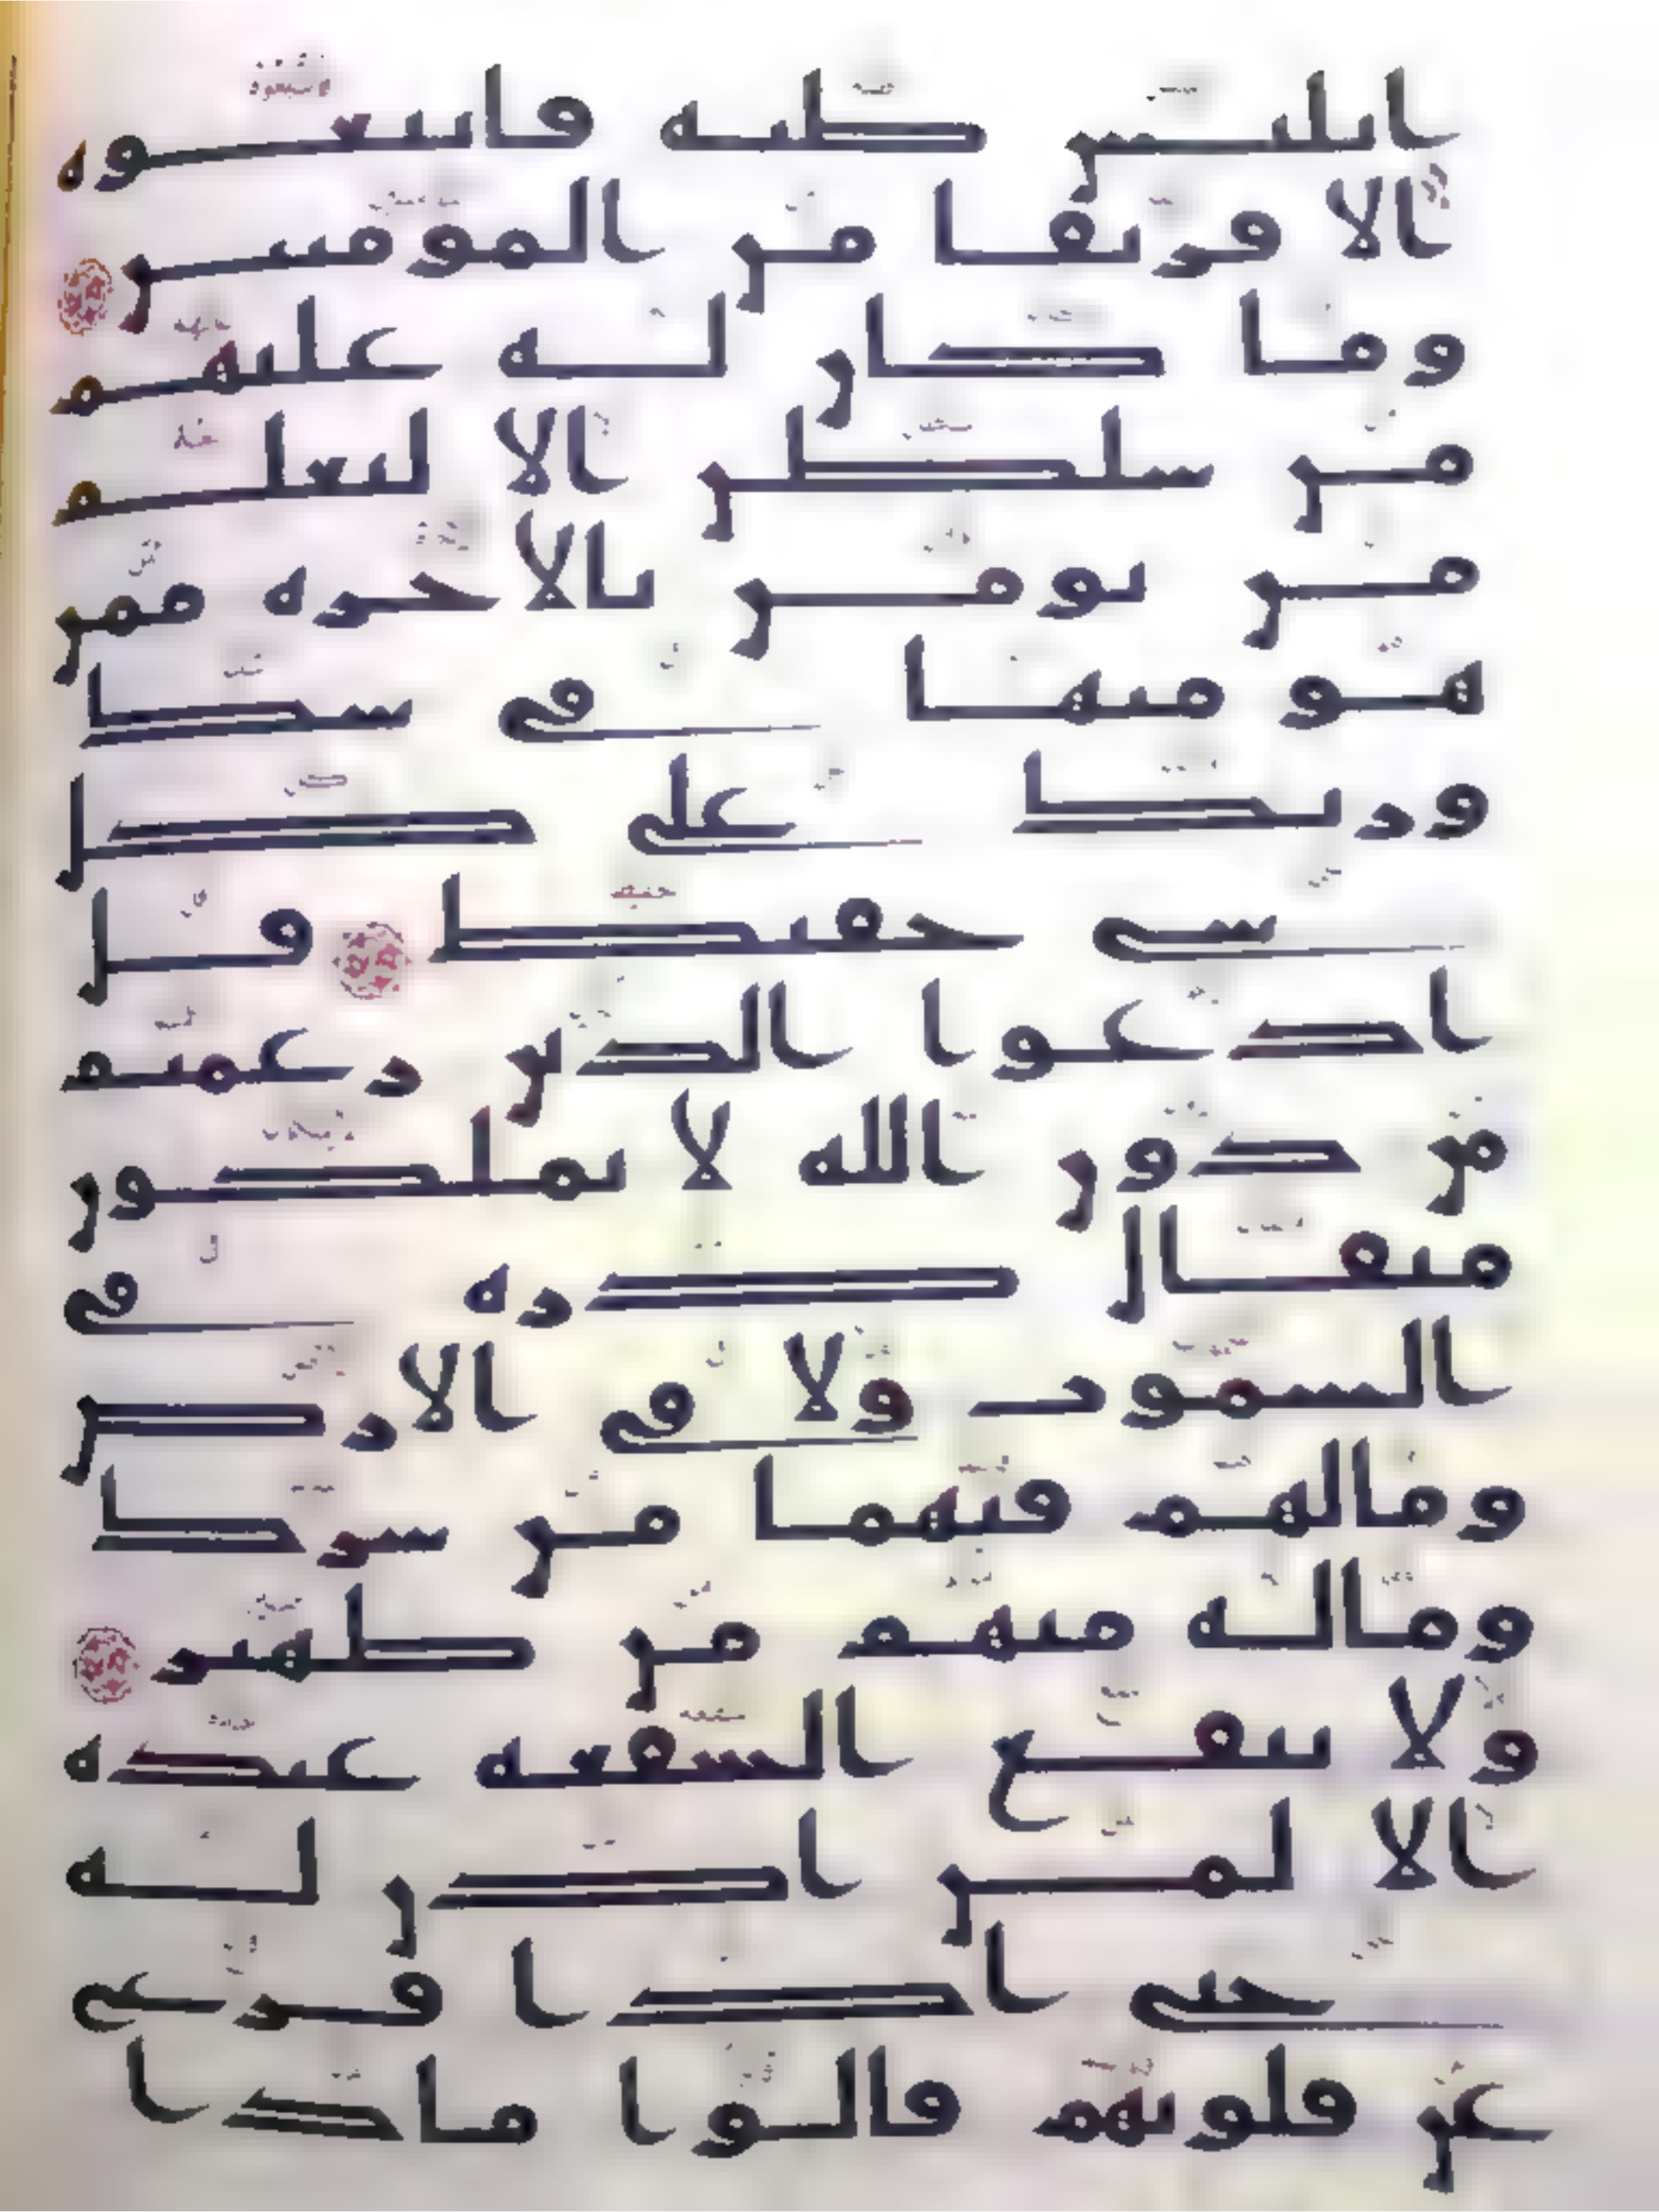 ابليس ظنه فاتبعوه
الا فريقا من المومنين
وما كان له عليهم
من سلطن الا لنعلم
من يومن بالاخره ممن
هو منها في شك
وربك على كل
شي حفيظ قل
ادعوا الذين زعمتم
من دون الله لا يملكون
مثقال ذره في
السموت ولا في الارض
ومالهم فيهما من شرك
وماله منهم من ظهير
ولا تنفع الشفعه عنده
الا لمن اذن له
حتى اذا فزع
عن قلوبهم قالوا ماذا